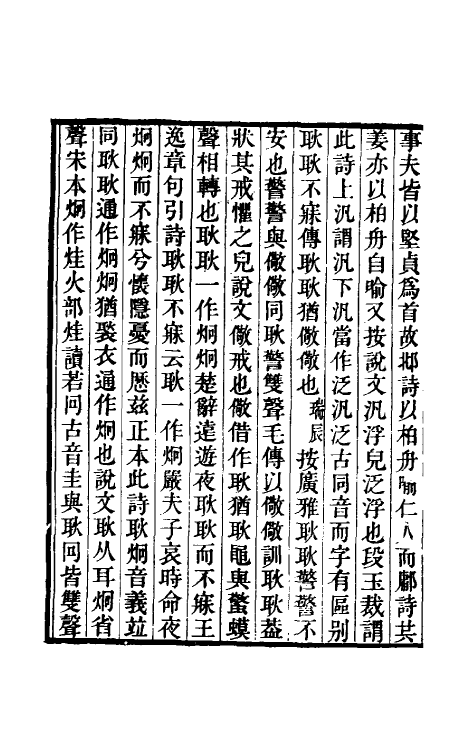 事夫皆以堅貞爲首故邶詩以柏舟明仁人而鄘詩共
姜亦以柏舟自喻又按說文汎浮皃泛浮也段玉裁謂
此詩上汎謂汎下汎當作泛汎泛古同音而字有區别
耿耿不寐傳耿耿猶儆儆也瑞辰按廣雅耿耿警警不
安也警警與儆儆同耿警雙聲毛傳以儆儆訓耿耿葢
狀其戒懼之皃說文儆戒也儆借作耿猶耿黽與蟼蟆
聲相轉也耿耿一作炯炯楚辭遠遊夜耿耿而不寐王
逸章句引詩耿耿不寐云耿一作炯嚴夫子哀時命夜
炯炯而不寐兮懷隱憂而厯茲正本此詩耿炯音義竝
同耿耿通作炯炯猶褧衣通作炯也說文耿从耳炯省
聲宋本炯作烓火部烓讀若冋古音圭與耿冋皆雙聲